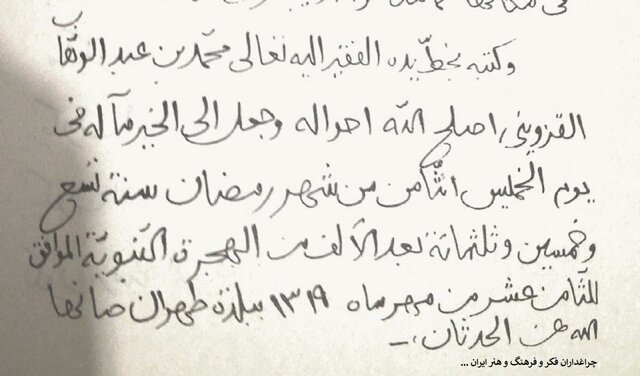 وكتبه بخطّ يده الفقير اليه تعالى محمّد بن عبد الوهّاب
القزوينى اصلح الله احواله وجعل الى الخير مآله فى
يوم الخميس الثّامن من شهر رمضان سنة تسع
وخمسين وثلثمائة بعد الألف من الهجرة النّبويّة الموافق
للثّامن عشر من مهرماه ۱۳۱۹ ببلدة طهران صانها
الله عن الحدثان،ـ
چراغداران فکر و فرهنگ و هنر ایران ...